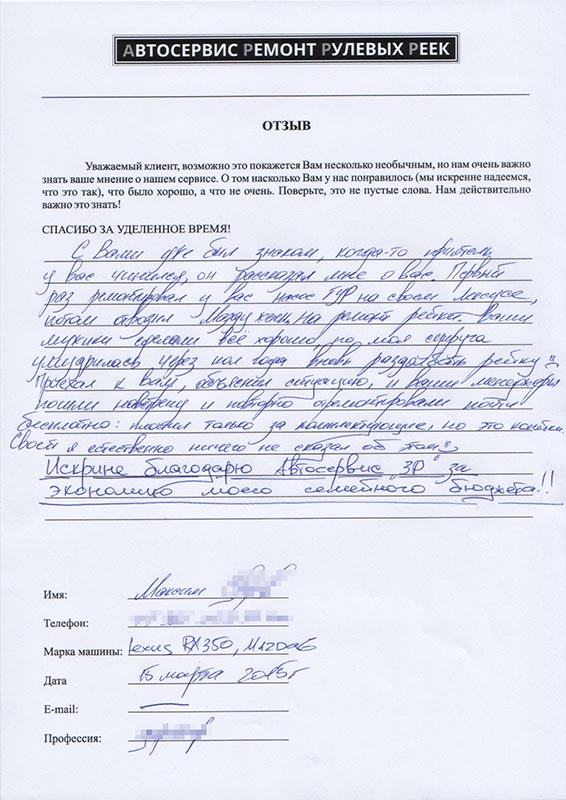 АВТОСЕРВИС РЕМОНТ РУЛЕВЫХ РЕЕК
ОТЗЫВ
Уважаемый клиент, возможно это покажется Вам несколько необычным, но нам очень важно
знать ваше мнение о нашем сервисе. О том насколько Вам у нас понравилось (мы искренне надеемся,
что это так), что было хорошо, а что не очень. Поверьте, это не пустые слова. Нам действительно
важно это знать!
СПАСИБО ЗА УДЕЛЕННОЕ ВРЕМЯ!
С Вами уже был знаком, когда-то приятель
у вас чинился, он рассказал мне о вас. Первый
раз ремонтировал у вас насос ГУР на своем Лексусе,
потом отвозил Мазду жены на ремонт рейки. Ваши
мужики сделали всё хорошо, но моя супруга
умудрилась через пол года вновь раздолбать рейку
Приехал к Вам, объяснил ситуацию, и ваши менеджеры
пошли навстречу и повторно отремонтировали почти
бесплатно: платил только за комплектующие, но это копейки.
Своей я естественно ничего не сказал об этом
Искрине благодарю Автосервис "ЗР" за
экономию моего семейного бюджета!!
Имя: Максим
Телефон:
Марка машины: Lexus RX350, Mazda6
Дата 15 марта 2015г
E-mail: —
Профессия: